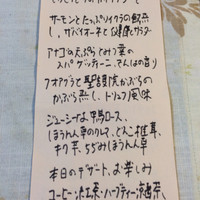 サーモンとたっぷりイクラの瞬蒸
し、サバイオーネと健康サラダ
アナゴの天ぷらとみつ葉の
スパゲッティーニ、さんしょの香り
フォアグラと聖護院かぶらの
かぶら蒸し、トリュフ風味
ジューシーな鴨ロース、
ほうれん草のクレマ、どんこ椎茸、
キク芋、ちぢみほうれん草
本日のデザート、お楽しみ
コーヒー・紅茶・ハーブティー・